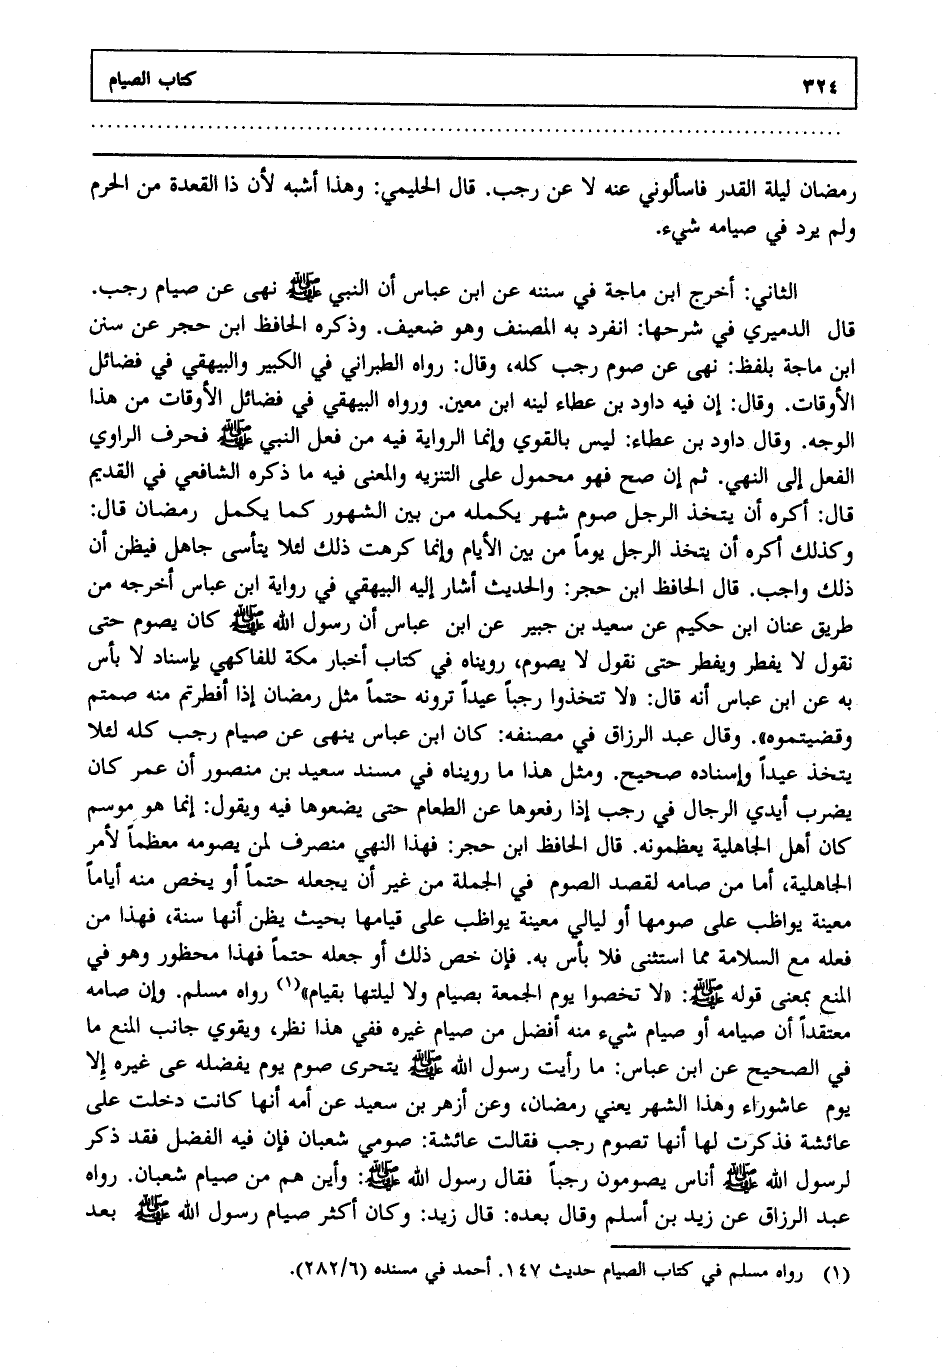 ٣٢٤ كتاب الصيام
رمضان ليلة القدر فاسألوني عنه لا عن رجب. قال الحليمي: وهذا أشبه لأن ذا القعدة من الحرم
ولم يرد في صيامه شيء.
الثاني: أخرج ابن ماجة في سننه عن ابن عباس أن النبي ﷺ نهى عن صيام رجب.
قال الدميري في شرحها: انفرد به المصنف وهو ضعيف. وذكره الحافظ ابن حجر عن سنن
ابن ماجة بلفظ: نهى عن صوم رجب كله، وقال: رواه الطبراني في الكبير والبيهقي في فضائل
الأوقات. وقال: إن فيه داود بن عطاء لينه ابن معين. ورواه البيهقي في فضائل الأوقات من هذا
الوجه. وقال داود بن عطاء: ليس بالقوي وإنما الرواية فيه من فعل النبي ﷺ فحرف الراوي
الفعل إلى النهي. ثم إن صح فهو محمول على التنزيه والمعنى فيه ما ذكره الشافعي في القديم
قال: أكره أن يتخذ الرجل صوم شهر يكمله من بين الشهور كما يكمل رمضان قال:
وكذلك أكره أن يتخذ الرجل يوماً من بين الأيام وإنما كرهت ذلك لئلا يتأسى جاهل فيظن أن
ذلك واجب. قال الحافظ ابن حجر: والحديث أشار إليه البيهقي في رواية ابن عباس أخرجه من
طريق عنان ابن حكيم عن سعيد بن جبير عن ابن عباس أن رسول الله ﷺ كان يصوم حتى
نقول لا يفطر ويفطر حتى نقول لا يصوم، رويناه في كتاب أخبار مكة للفاكهي بإسناد لا بأس
به عن ابن عباس أنه قال: «لا تتخذوا رجباً عيداً ترونه حتماً مثل رمضان إذا أفطرتم منه صمتم
وقضيتموه». وقال عبد الرزاق في مصنفه: كان ابن عباس ينهى عن صيام رجب كله لئلا
يتخذ عيداً وإسناده صحيح. ومثل هذا ما رويناه في مسند سعيد بن منصور أن عمر كان
يضرب أيدي الرجال في رجب إذا رفعوها عن الطعام حتى يضعوها فيه ويقول: إنما هو موسم
كان أهل الجاهلية يعظمونه. قال الحافظ ابن حجر: فهذا النهي منصرف لمن يصومه معظماً لأمر
الجاهلية، أما من صامه لقصد الصوم في الجملة من غير أن يجعله حتماً أو يخص منه أياماً
معينة يواظب على صومها أو ليالي معينة يواظب على قيامها بحيث يظن أنها سنة، فهذا من
فعله مع السلامة مما استثنى فلا بأس به. فإن خص ذلك أو جعله حتماً فهذا محظور وهو في
المنع بمعنى قوله ﷺ: «لا تخصوا يوم الجمعة بصيام ولا ليلتها بقيام»(١) رواه مسلم. وإن صامه
معتقداً أن صيامه أو صيام شيء منه أفضل من صيام غيره ففي هذا نظر، ويقوي جانب المنع ما
في الصحيح عن ابن عباس: ما رأيت رسول الله ﷺ يتحرى صوم يوم يفضله عى غيره إلا
يوم عاشوراء وهذا الشهر يعني رمضان، وعن أزهر بن سعيد عن أمه أنها كانت دخلت على
عائشة فذكرت لها أنها تصوم رجب فقالت عائشة: صومي شعبان فإن فيه الفضل فقد ذكر
لرسول الله ﷺ أناس يصومون رجباً فقال رسول الله ﷺ: وأين هم من صيام شعبان. رواه
عبد الرزاق عن زيد بن أسلم وقال بعده: قال زيد: وكان أكثر صيام رسول الله ﷺ بعد
(١) رواه مسلم في كتاب الصيام حديث ١٤٧. أحمد في مسنده (٢٨٢/٦).